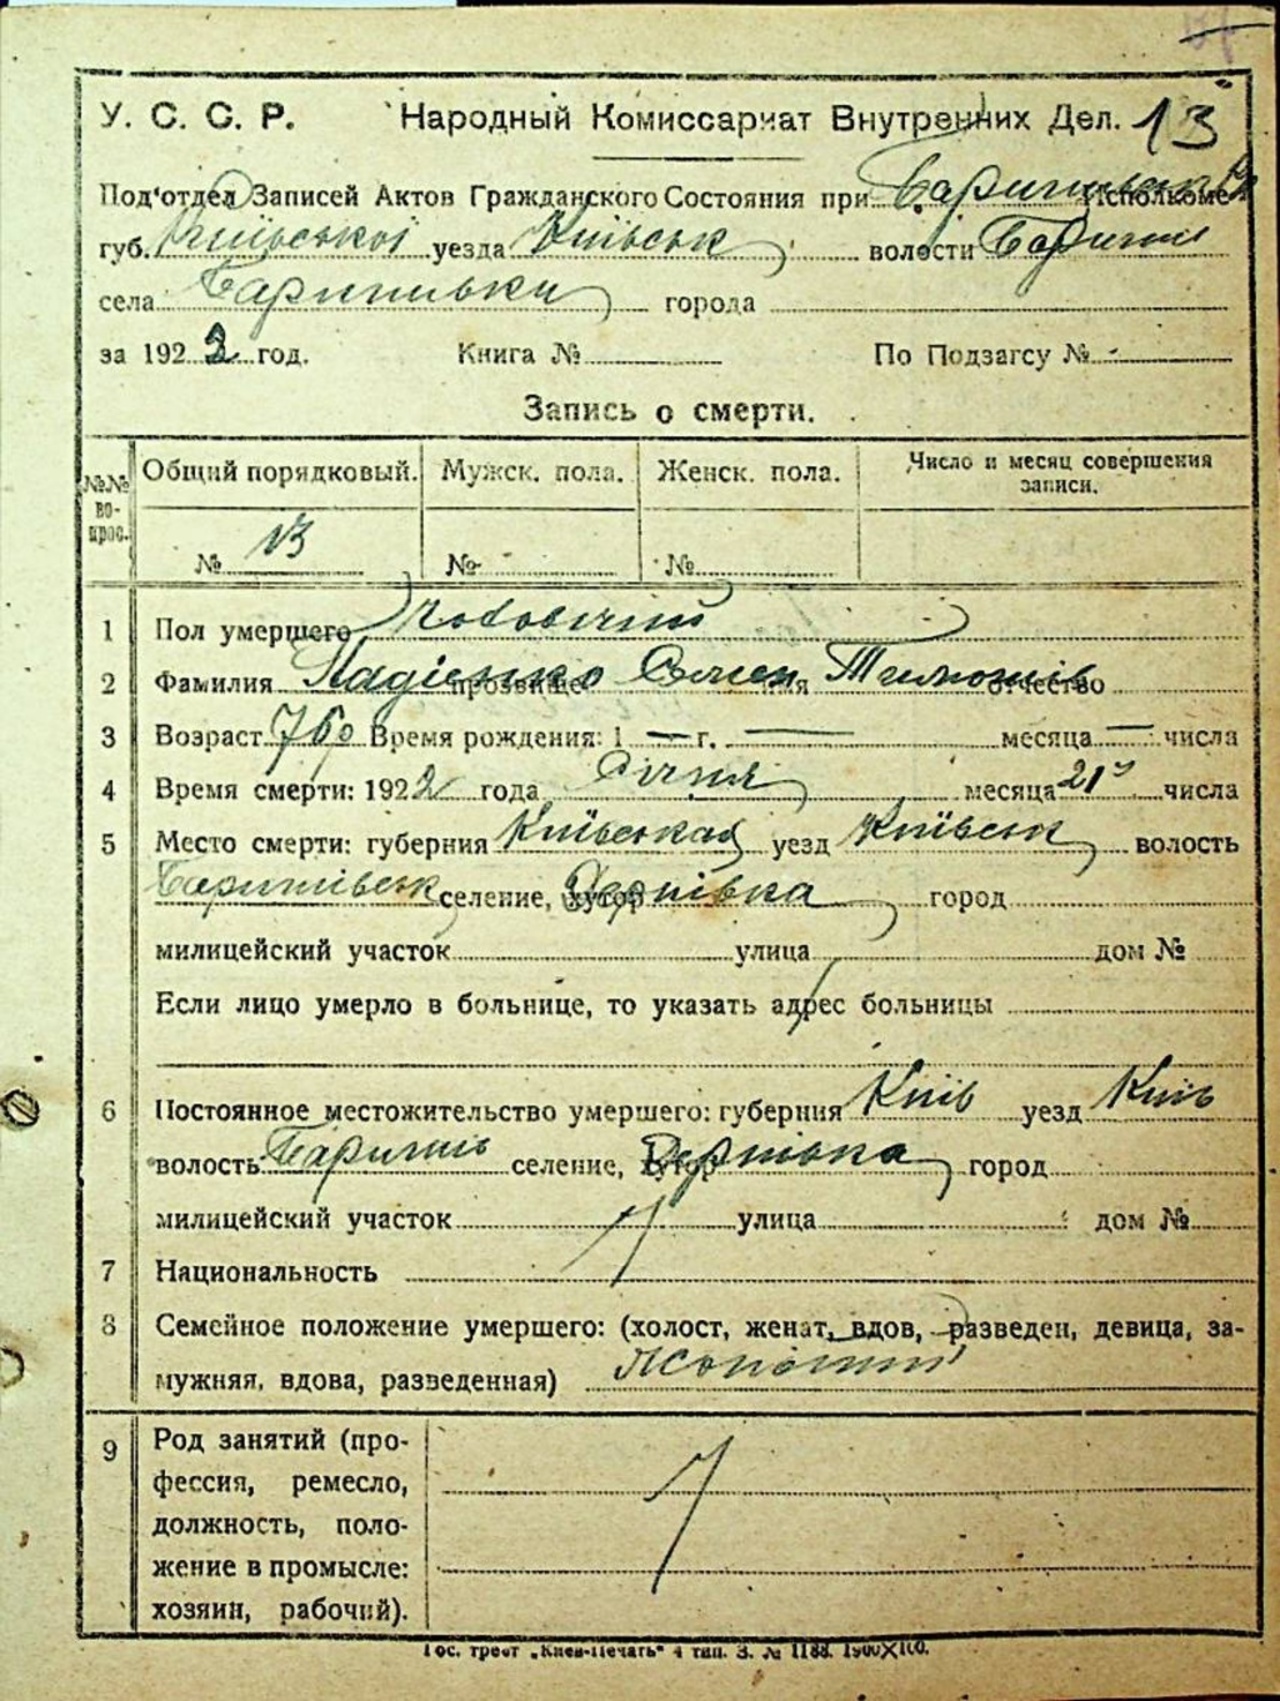 У. С. С. Р. Народный Комиссариат Внутренних Дел. 13
Под'отдел Записей Актов Гражданского Состояния при Исполкоме
губ. Київської уезда Київськ волости Баришів
села Баришівки города
за 1922 год. Книга № По Подзагсу №
Запись о смерти.
№№ вопрос. Общий порядковый. Мужск. пола. Женск. пола. Число и месяц совершения записи.
№ 13 № №
1 Пол умершего чоловічий
2 Фамилия прозвище имя Тимошів отчество
3 Возраст 76 р Время рождения: 1 — г. — месяца — числа
4 Время смерти: 1922 года Січня месяца 21 числа
5 Место смерти: губерния Київская уезд Київськ волость
Баришівськ селение, хутор Дернівка город
милицейский участок улица дом №
Если лицо умерло в больнице, то указать адрес больницы
6 Постоянное местожительство умершего: губерния Київ уезд Київ
волость Баришів селение, хутор Дернівка город
милицейский участок улица дом №
7 Национальность
8 Семейное положение умершего: (холост, женат, вдов, разведен, девица, за-
мужняя, вдова, разведенная) Жонатий
9 Род занятий (про-
фессия, ремесло,
должность, поло-
жение в промысле:
хозяин, рабочий).
Гос. трест „Киев-Печать" 4 тип. З. № 1188. 1900×100.